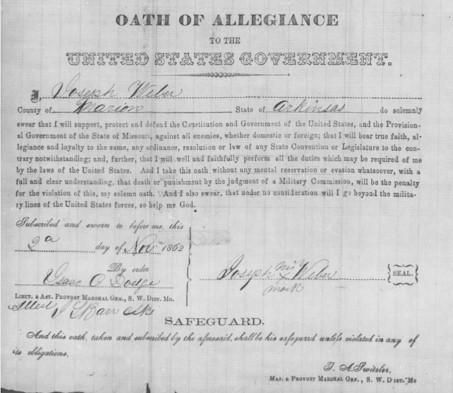 OATH OF ALLEGIANCE
TO THE
UNITED STATES GOVERNMENT.
I, Joseph Weber
County of Marion State of Arkinsas do solemnly
swear that I will support, protect and defend the Constitution and Government of the United States, and the Provision-
al Government of the State of Missouri, against all enemies, whether domestic or foreign; that I will bear true faith, al-
legiance and loyalty to the same, any ordinance, resolution or law of any State Convention or Legislature to the con-
trary notwithstanding; and, further, that I will well and faithfully perform all the duties which may be required of me
by the laws of the United States. And I take this oath without any mental reservation or evasion whatsoever, with a
full and clear understanding, that death or punishment by the judgment of a Military Commission, will be the penalty
for the violation of this, my solemn oath. And I also swear, that under no consideration will I go beyond the mili-
tary lines of the United States forces, so help me God.
Subscribed and sworn to before me, this
2d day of Nov 1862
By order
Joseph his x Weber
mark
SEAL.
Isaac
LIEUT. & AST. PROVOST MARSHAL GEN., S. W. DIST. MO.
Attest
SAFEGUARD.
And this oath, taken and subscribed by the aforesaid, shall be his safeguard unless violated in any of
its obligations.
MAJ. & PROVOST MARSHAL GEN., S. W. DIST. MO